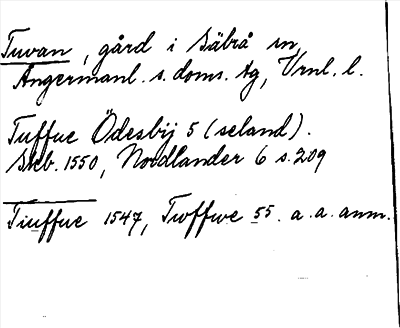 Tuvan, gård i Säbrå sn,
Ångermanl. s. doms. tg, Vrnl. l.
Tuffue Ödesbij 5 (seland).
Skb. 1550, Nordlander 6 s. 209
Tiuffue 1547, Twffwe 55. a. a. anm.